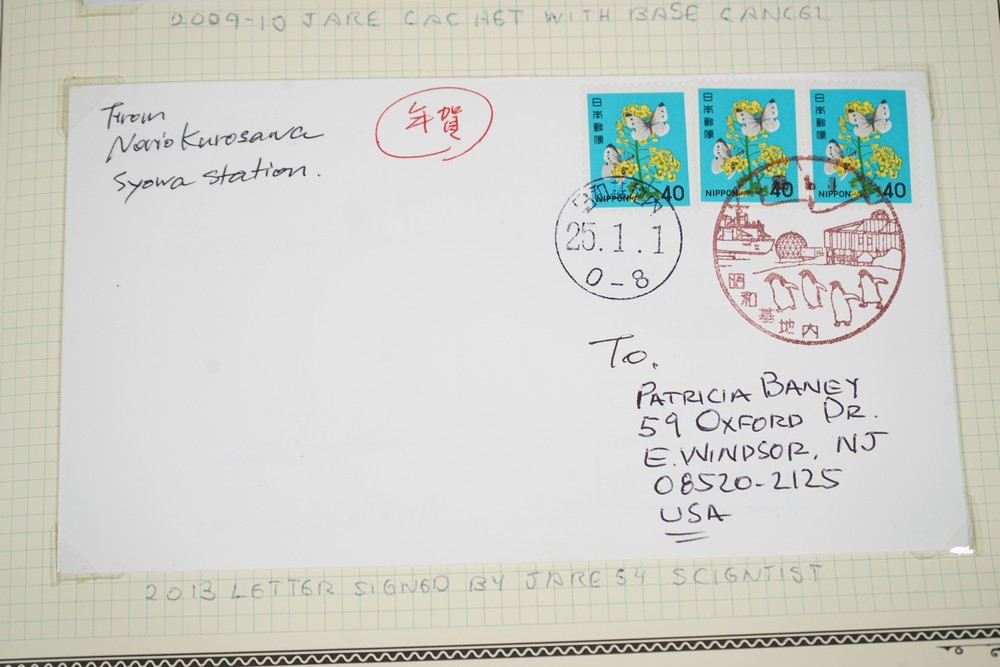 2009-10 JARE CACHET WITH BASE CANCEL
From
Norio Kurosawa
Syowa Station.
年賀
日本郵便
NIPPON 40
日本郵便
NIPPON 40
日本郵便
NIPPON 40
25.1.1
0-8
昭和基地内
To.
PATRICIA BANEY
59 OXFORD DR.
E. WINDSOR, NJ
08520-2125
USA
2013 LETTER SIGNED BY JARE 54 SCIENTIST